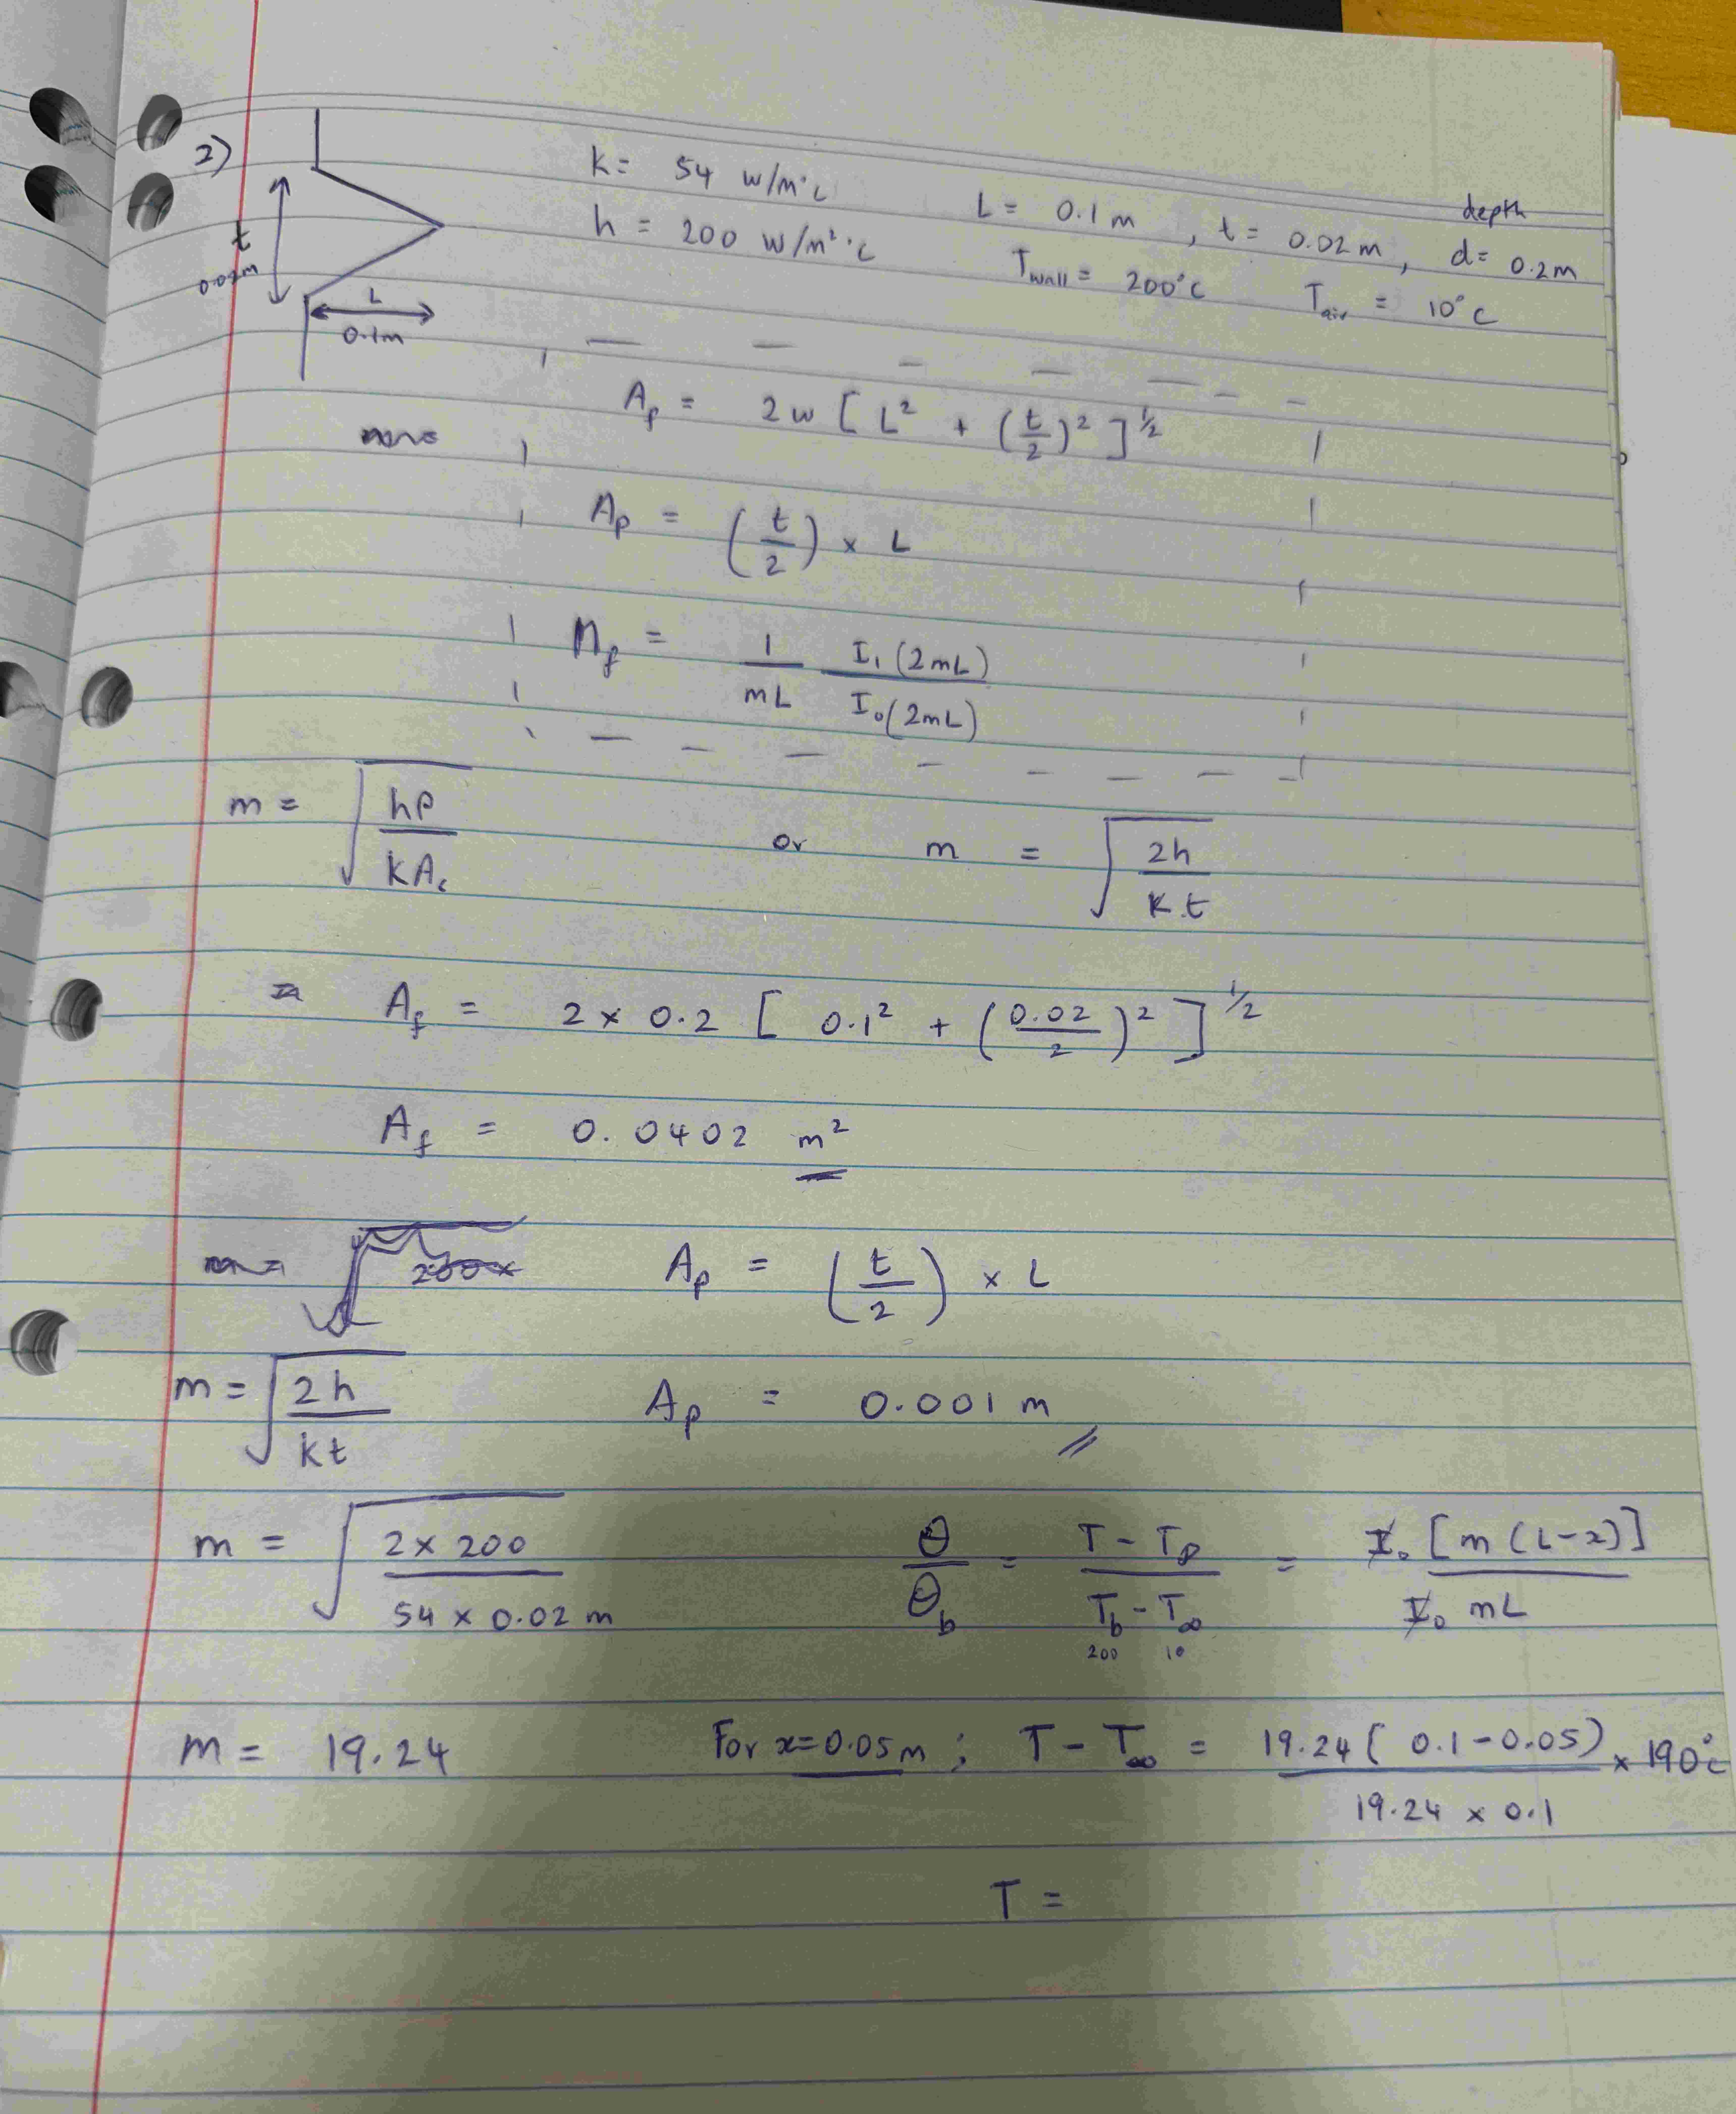 2)
k = 54 w/m°c
h = 200 w/m²°c
L = 0.1 m , t = 0.02 m , depth d = 0.2m
T wall = 200°c T air = 10°c
t
0.02m
L
0.1m
Ap = 2w [ L² + (t/2)² ]^½
Ap = (t/2) × L
ηf = 1/mL I₁(2mL)/I₀(2mL)
m = √(hP/kAc) or m = √(2h/kt)
Af = 2 × 0.2 [ 0.1² + (0.02/2)² ]^½
Af = 0.0402 m²
Ap = (t/2) × L
m = √(2h/kt) Ap = 0.001 m
m = √(2 × 200/54 × 0.02 m) θ/θb = T - T∞/Tb - T∞ = I₀ [m (L-x)]/I₀ mL
200 10
m = 19.24 For x = 0.05m ; T - T∞ = 19.24 ( 0.1 - 0.05)/19.24 × 0.1 × 190°c
T =